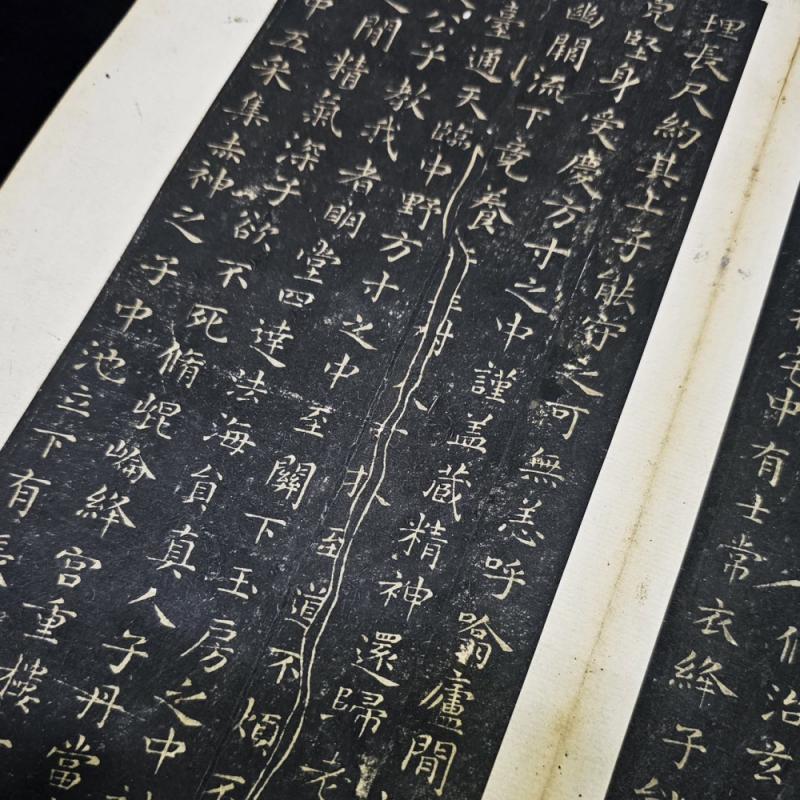 治玄
宅中有士常衣絳子
理長尺約其上子能守之可無恙呼噏廬間
堅身受慶方寸之中謹盖藏精神還歸老
幽闕流下竟養至道不煩不
臺通天臨中野方寸之中至關下玉房之中
公子教我者明堂四達法海員真人子丹當
間精氣深子欲不死脩崐崘絳宮重樓
中五采集赤神之子中池立下有